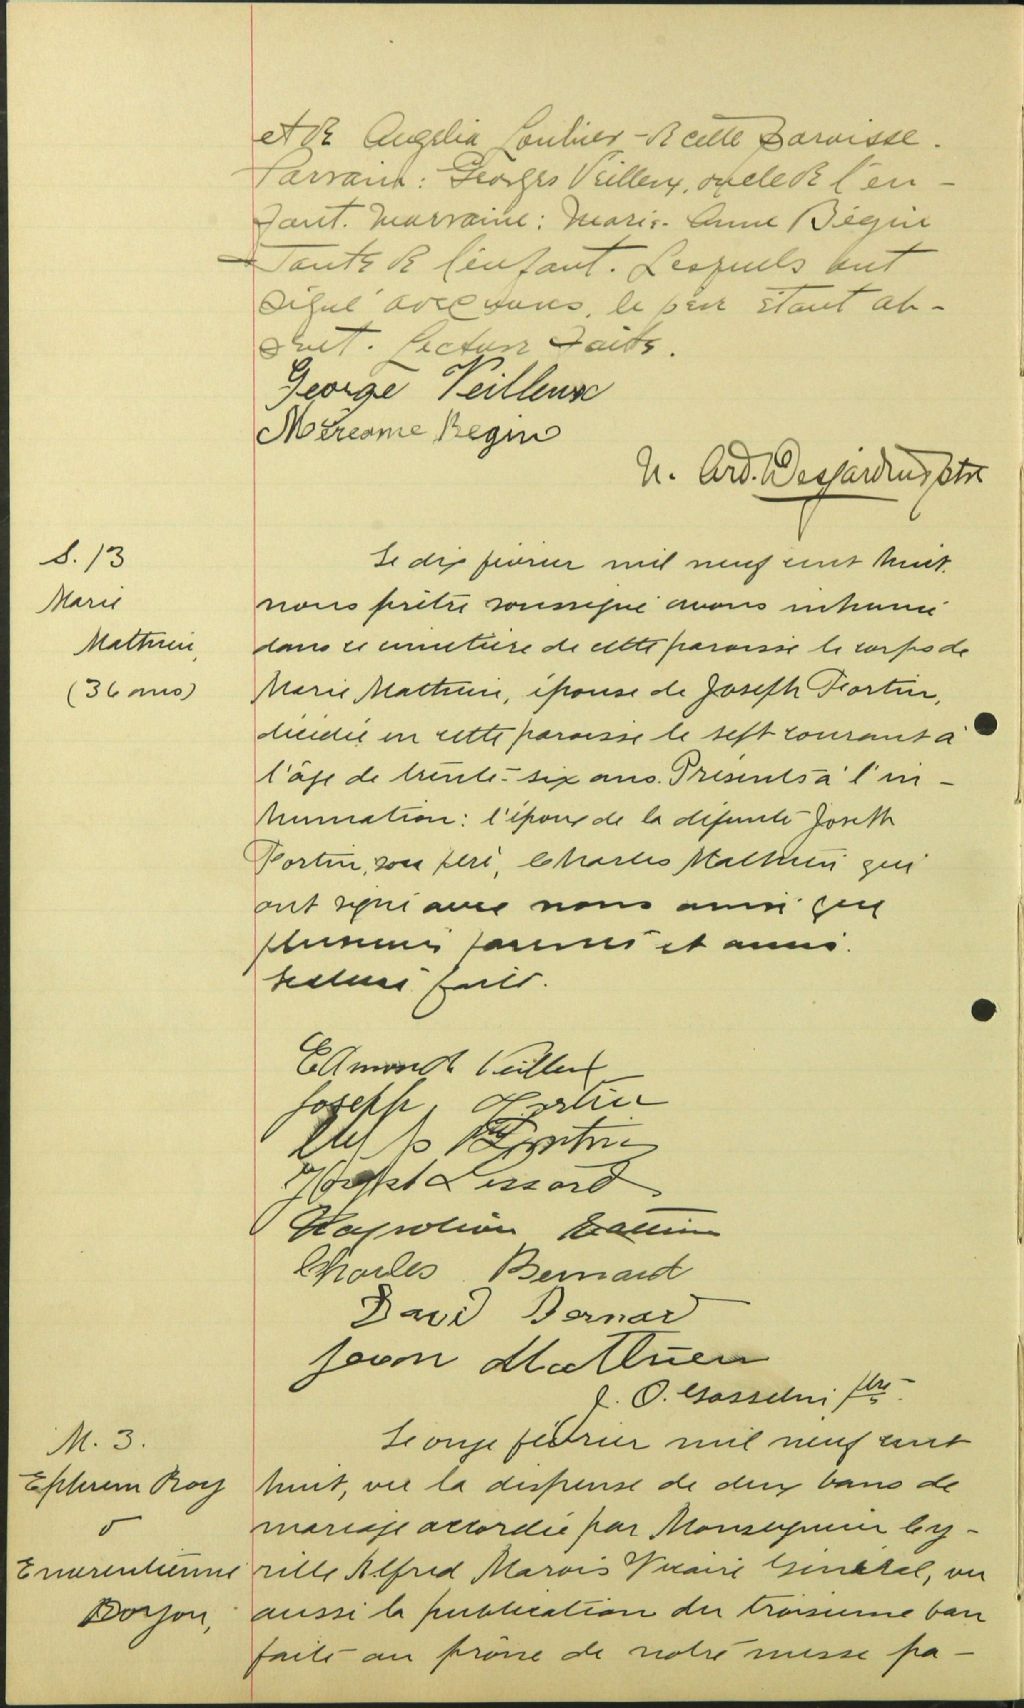 et de Angelia Loubier - de cette paroisse.
Parrain: Georges Veilleux, oncle de l'en-
fant. Marraine: Marie-Anne Bégin
Tante de l'enfant. Lesquels ont
signé avec nous, le père étant ab-
sent. Lecture faite.
George Veilleux
Bégin
N. Ard. Desjardins ptre
S. 13
Marie
Mathieu,
(36 ans)
Le dix février mil neuf cent huit
nous prêtre soussigné avons inhumé
dans le cimetière de cette paroisse le corps de
Marie Mathieu, épouse de Joseph Fortin,
décédée en cette paroisse le sept courant à
l'âge de trente-six ans. Présents à l'in-
humation: l'époux de la défunte Joseph
Fortin, son père, Charles Mathieu qui
ont signé avec nous ainsi que
plusieurs parents et amis.
Lecture faite.
Edmond Veilleux
Joseph Fortin
Fortin
Lessard
Napoléon
Charles Bernard
David Bernard
Mathieu
J. O. Gosselin ptre
M. 3.
Ephrem Roy
&
Emérentienne
Doyon,
Le onze février mil neuf cent
huit, vu la dispense de deux bans de
mariage accordée par Monseigneur Cy-
rille Alfred Marois Vicaire Général, vu
aussi la publication du troisième ban
faite au prône de notre messe pa-